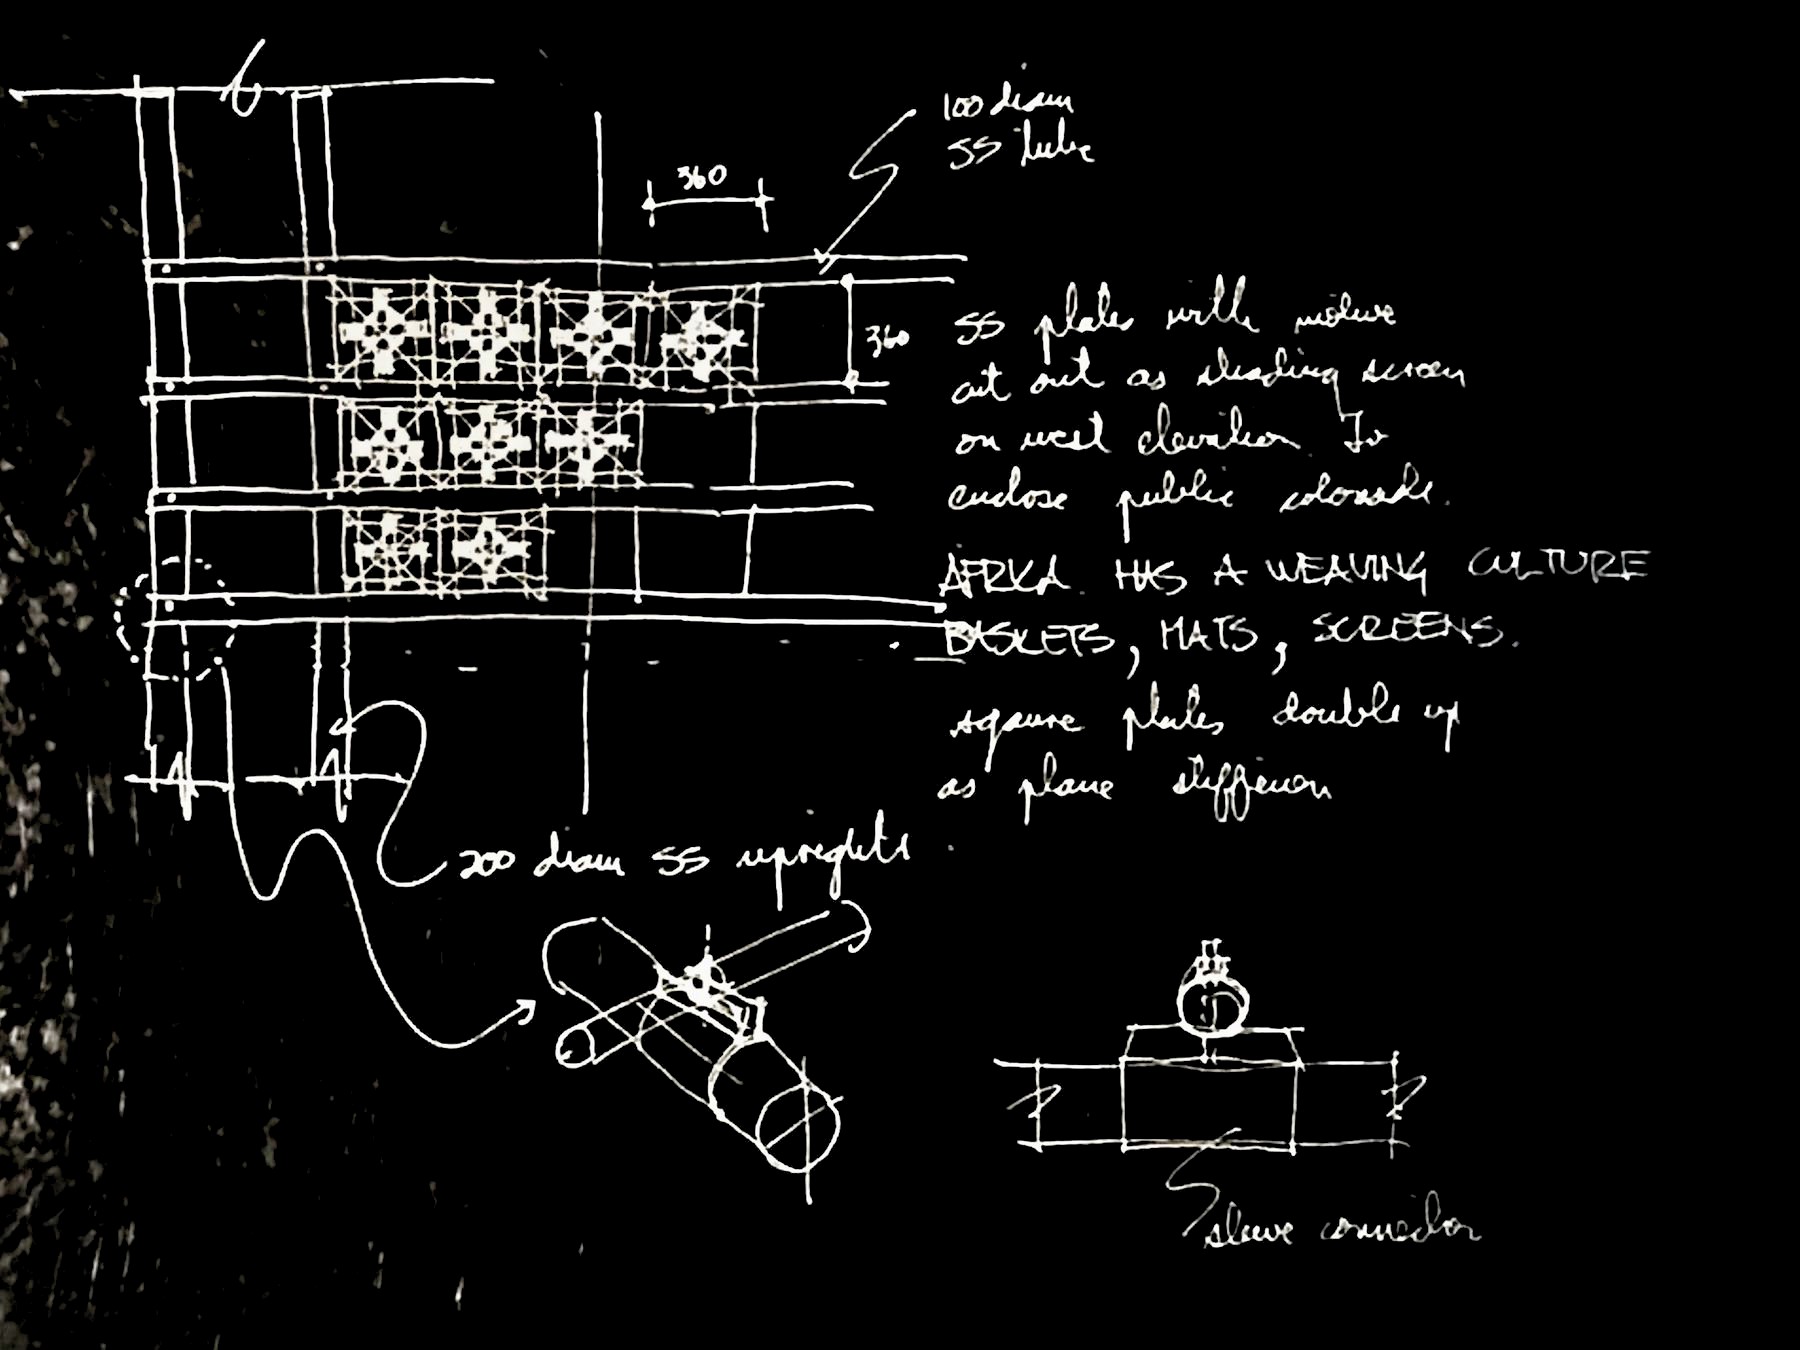 100 diam
SS tube
360
360
SS plates with motive
cut out as shading screen
on west elevation To
enclose public colonade.
AFRICA HAS A WEAVING CULTURE
BASKETS, MATS, SCREENS.
sqaure plates double up
as plane stiffener
200 diam SS uprights
sleeve connector